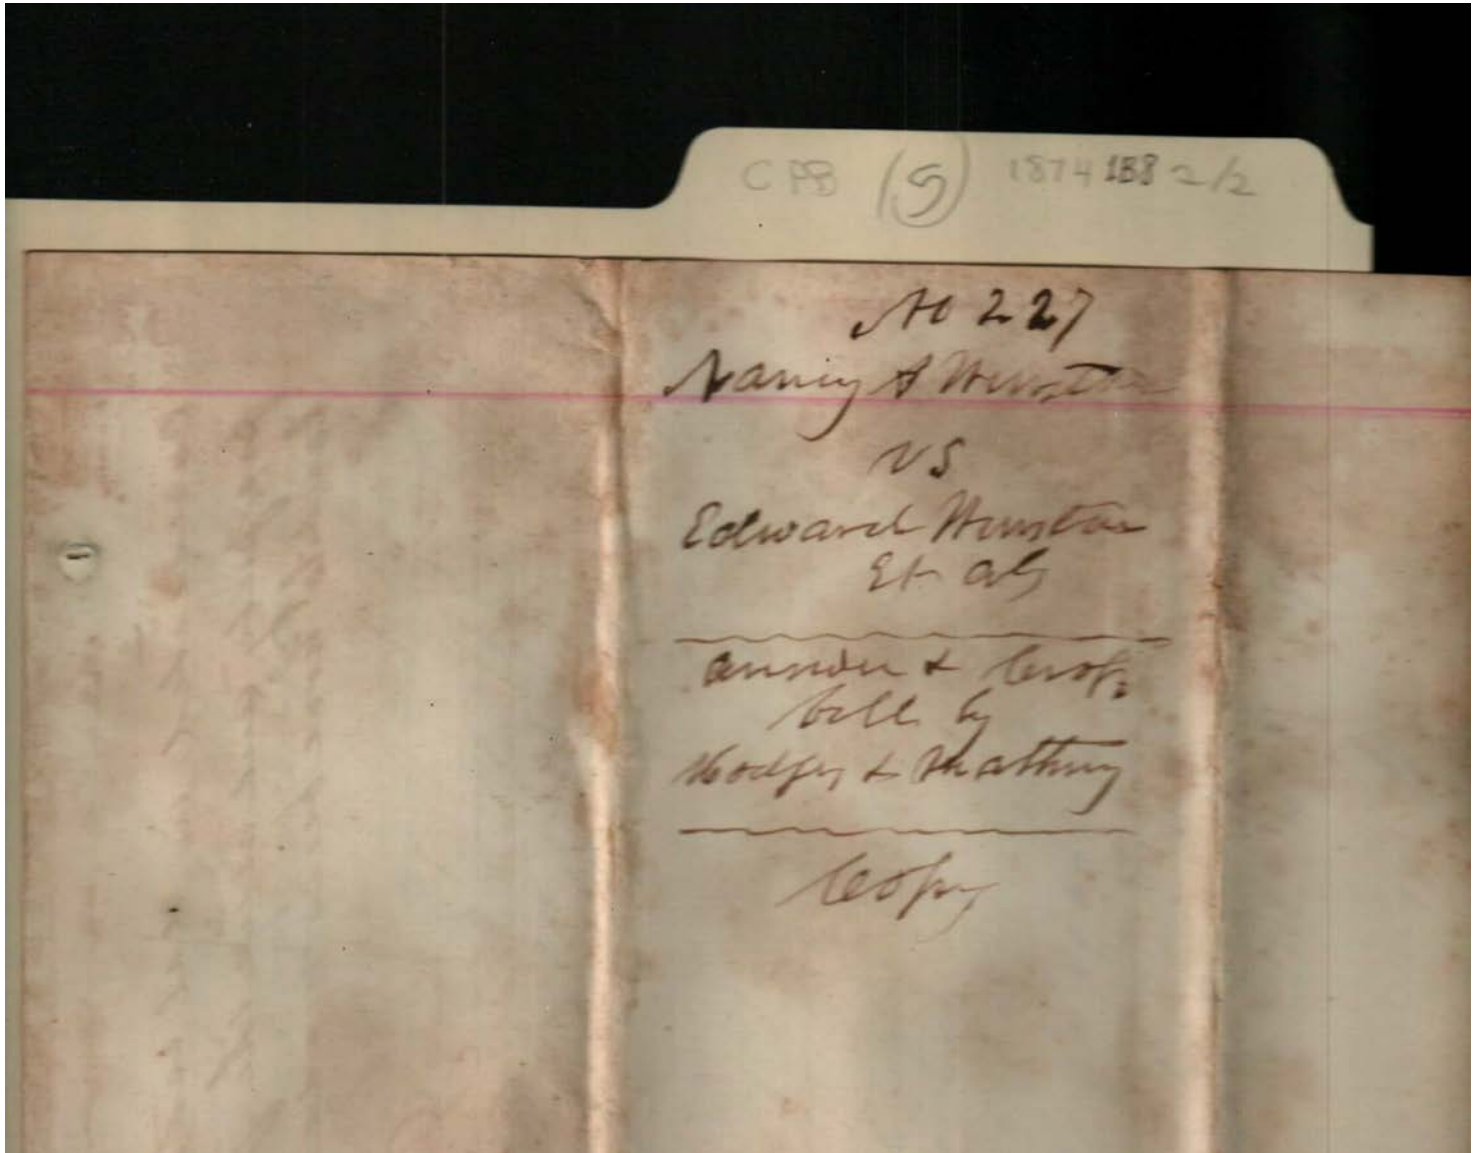 CPB (5) 1874 188 2/2
No 227
Nancy A Winston
vs
Edward Winston
Et als
answer & Cross
bill by
Hodges & Matheny
Copy